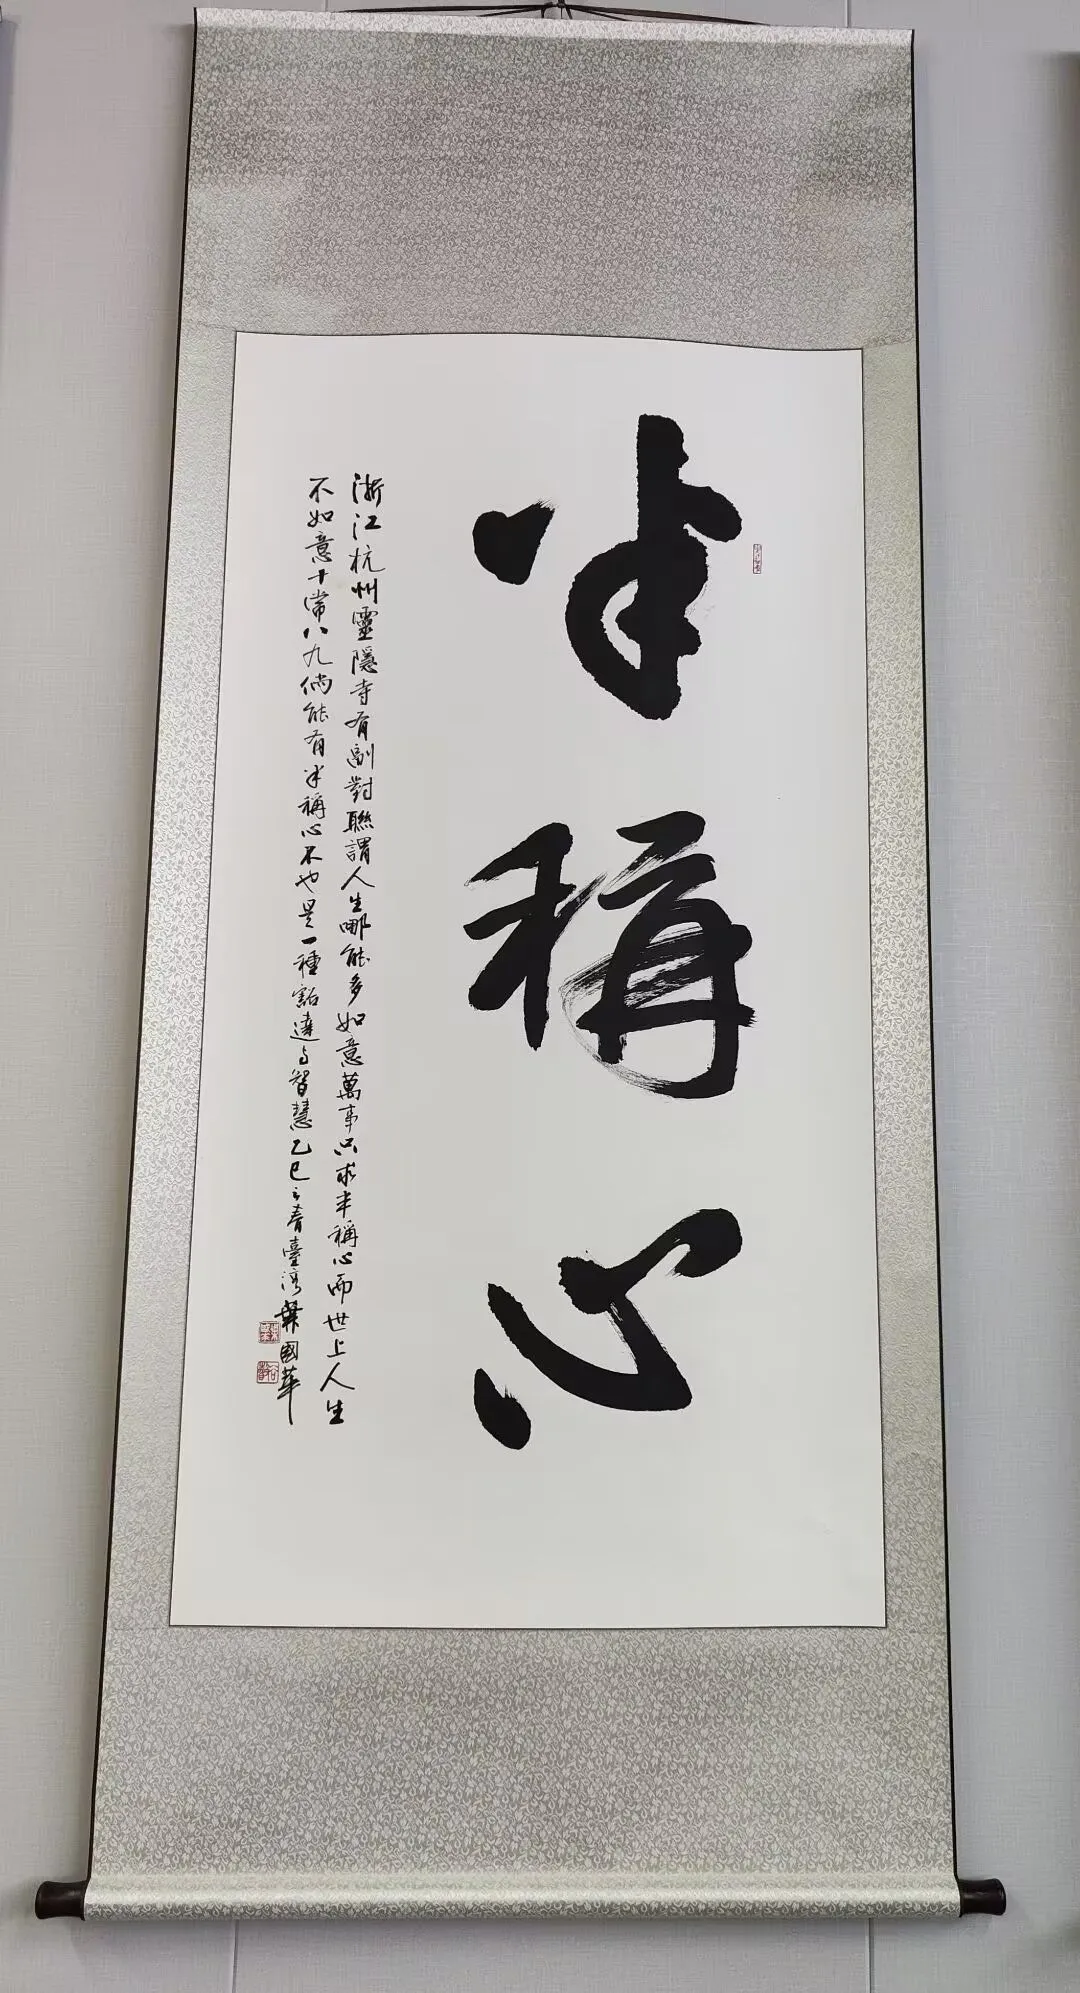 半稱心
浙江杭州靈隱寺有副對聯謂人生哪能多如意萬事只求半稱心而世上人生
不如意十常八九倘能有半稱心不也是一種豁達与智慧乙巳之春臺灣葉國華